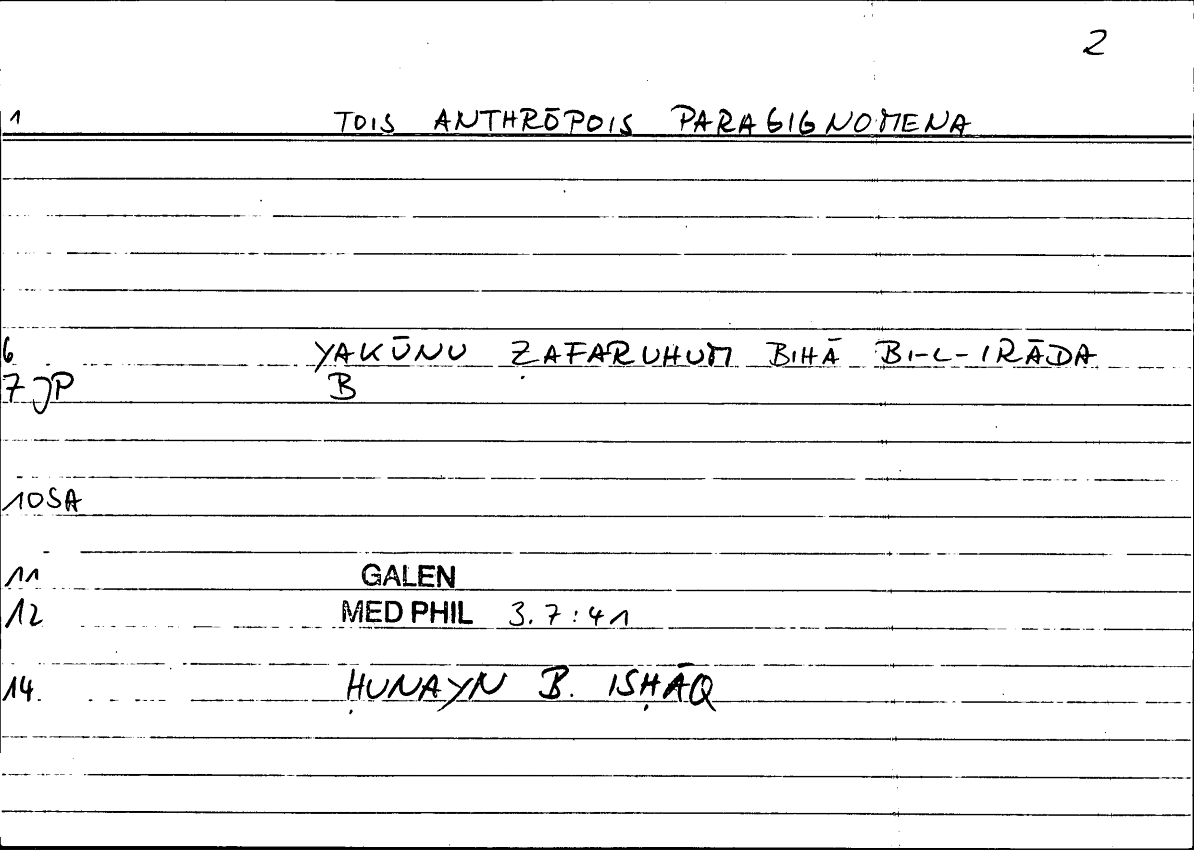 2
1 TOIS ANTHRŌPOIS PARAGIGNOMENA
6 YAKŪNU ẒAFARUHUM BIHĀ BI-L-IRĀDA
7 JP B
10 SA
11 GALEN
12 MED PHIL 3.7:41
14 ḤUNAYN B. ISḤĀQ